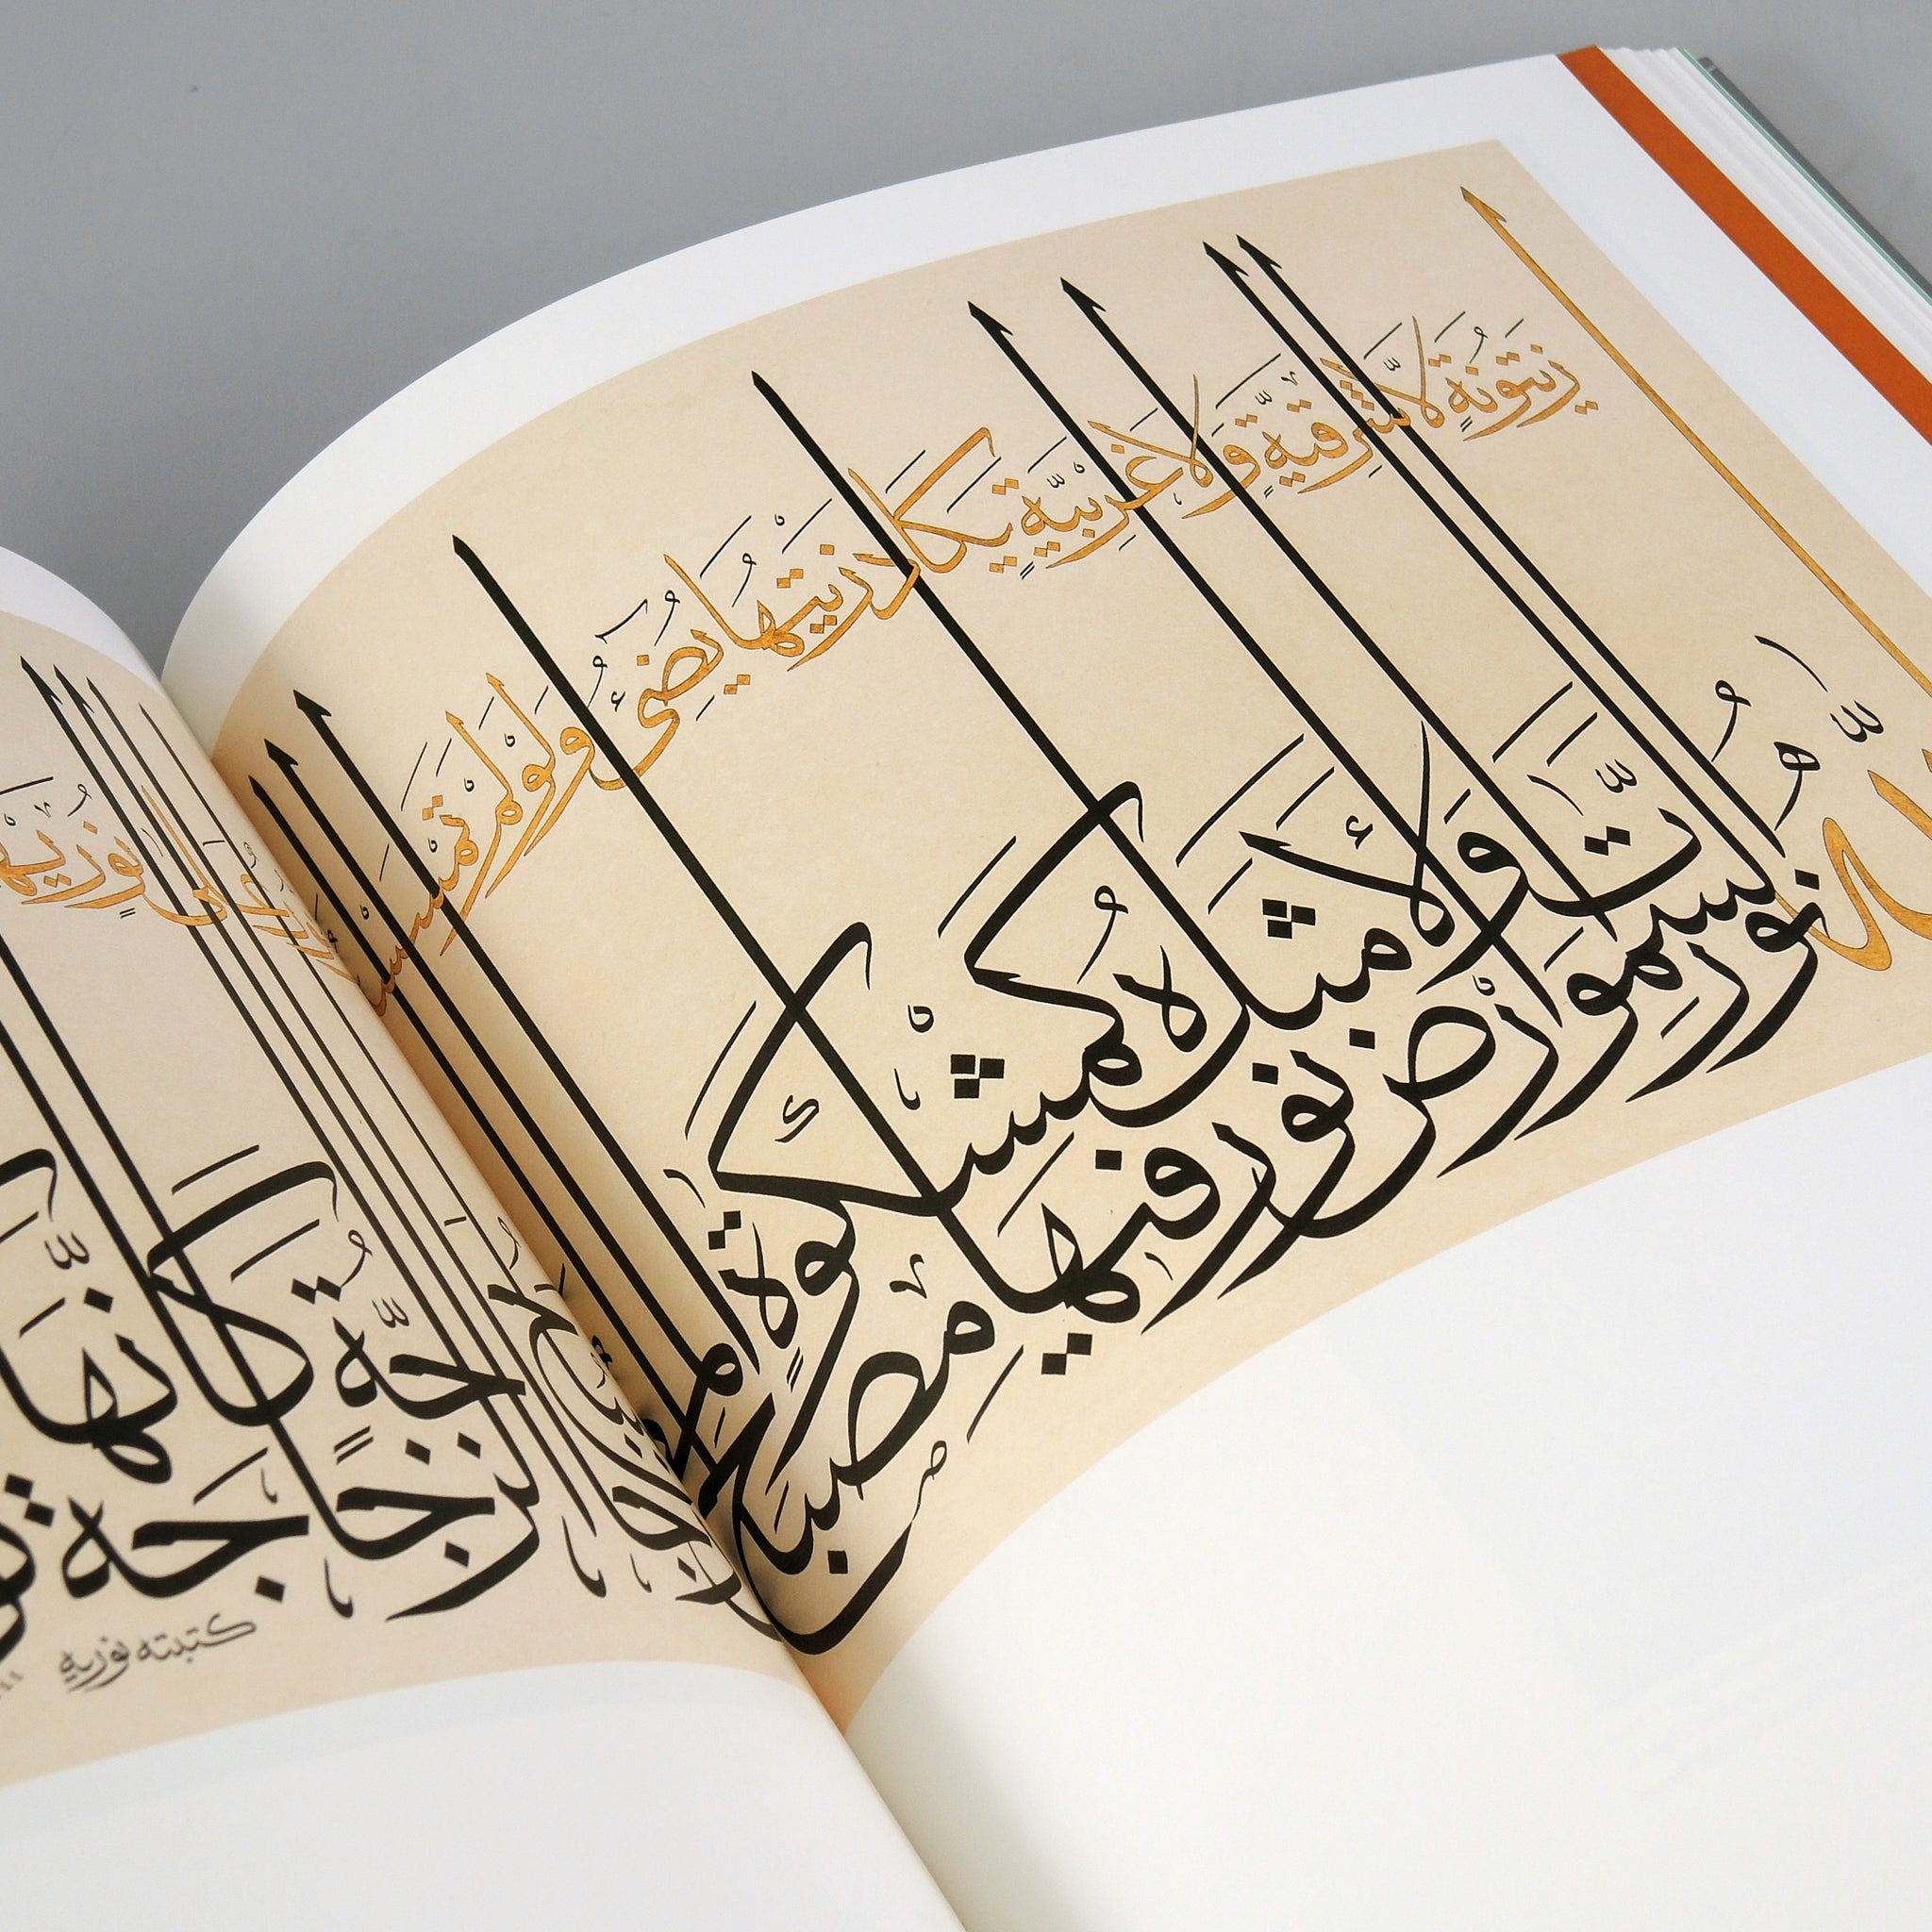 زيتونة لا شرقية ولا غربية يكاد زيتها يضيء ولو لم تمسسه نار نور على نور يهد
الله نور السموات والأرض مثل نوره كمشكوة فيها مصباح المصباح في زجاجة الزجاجة كأنها
كتبته نورية